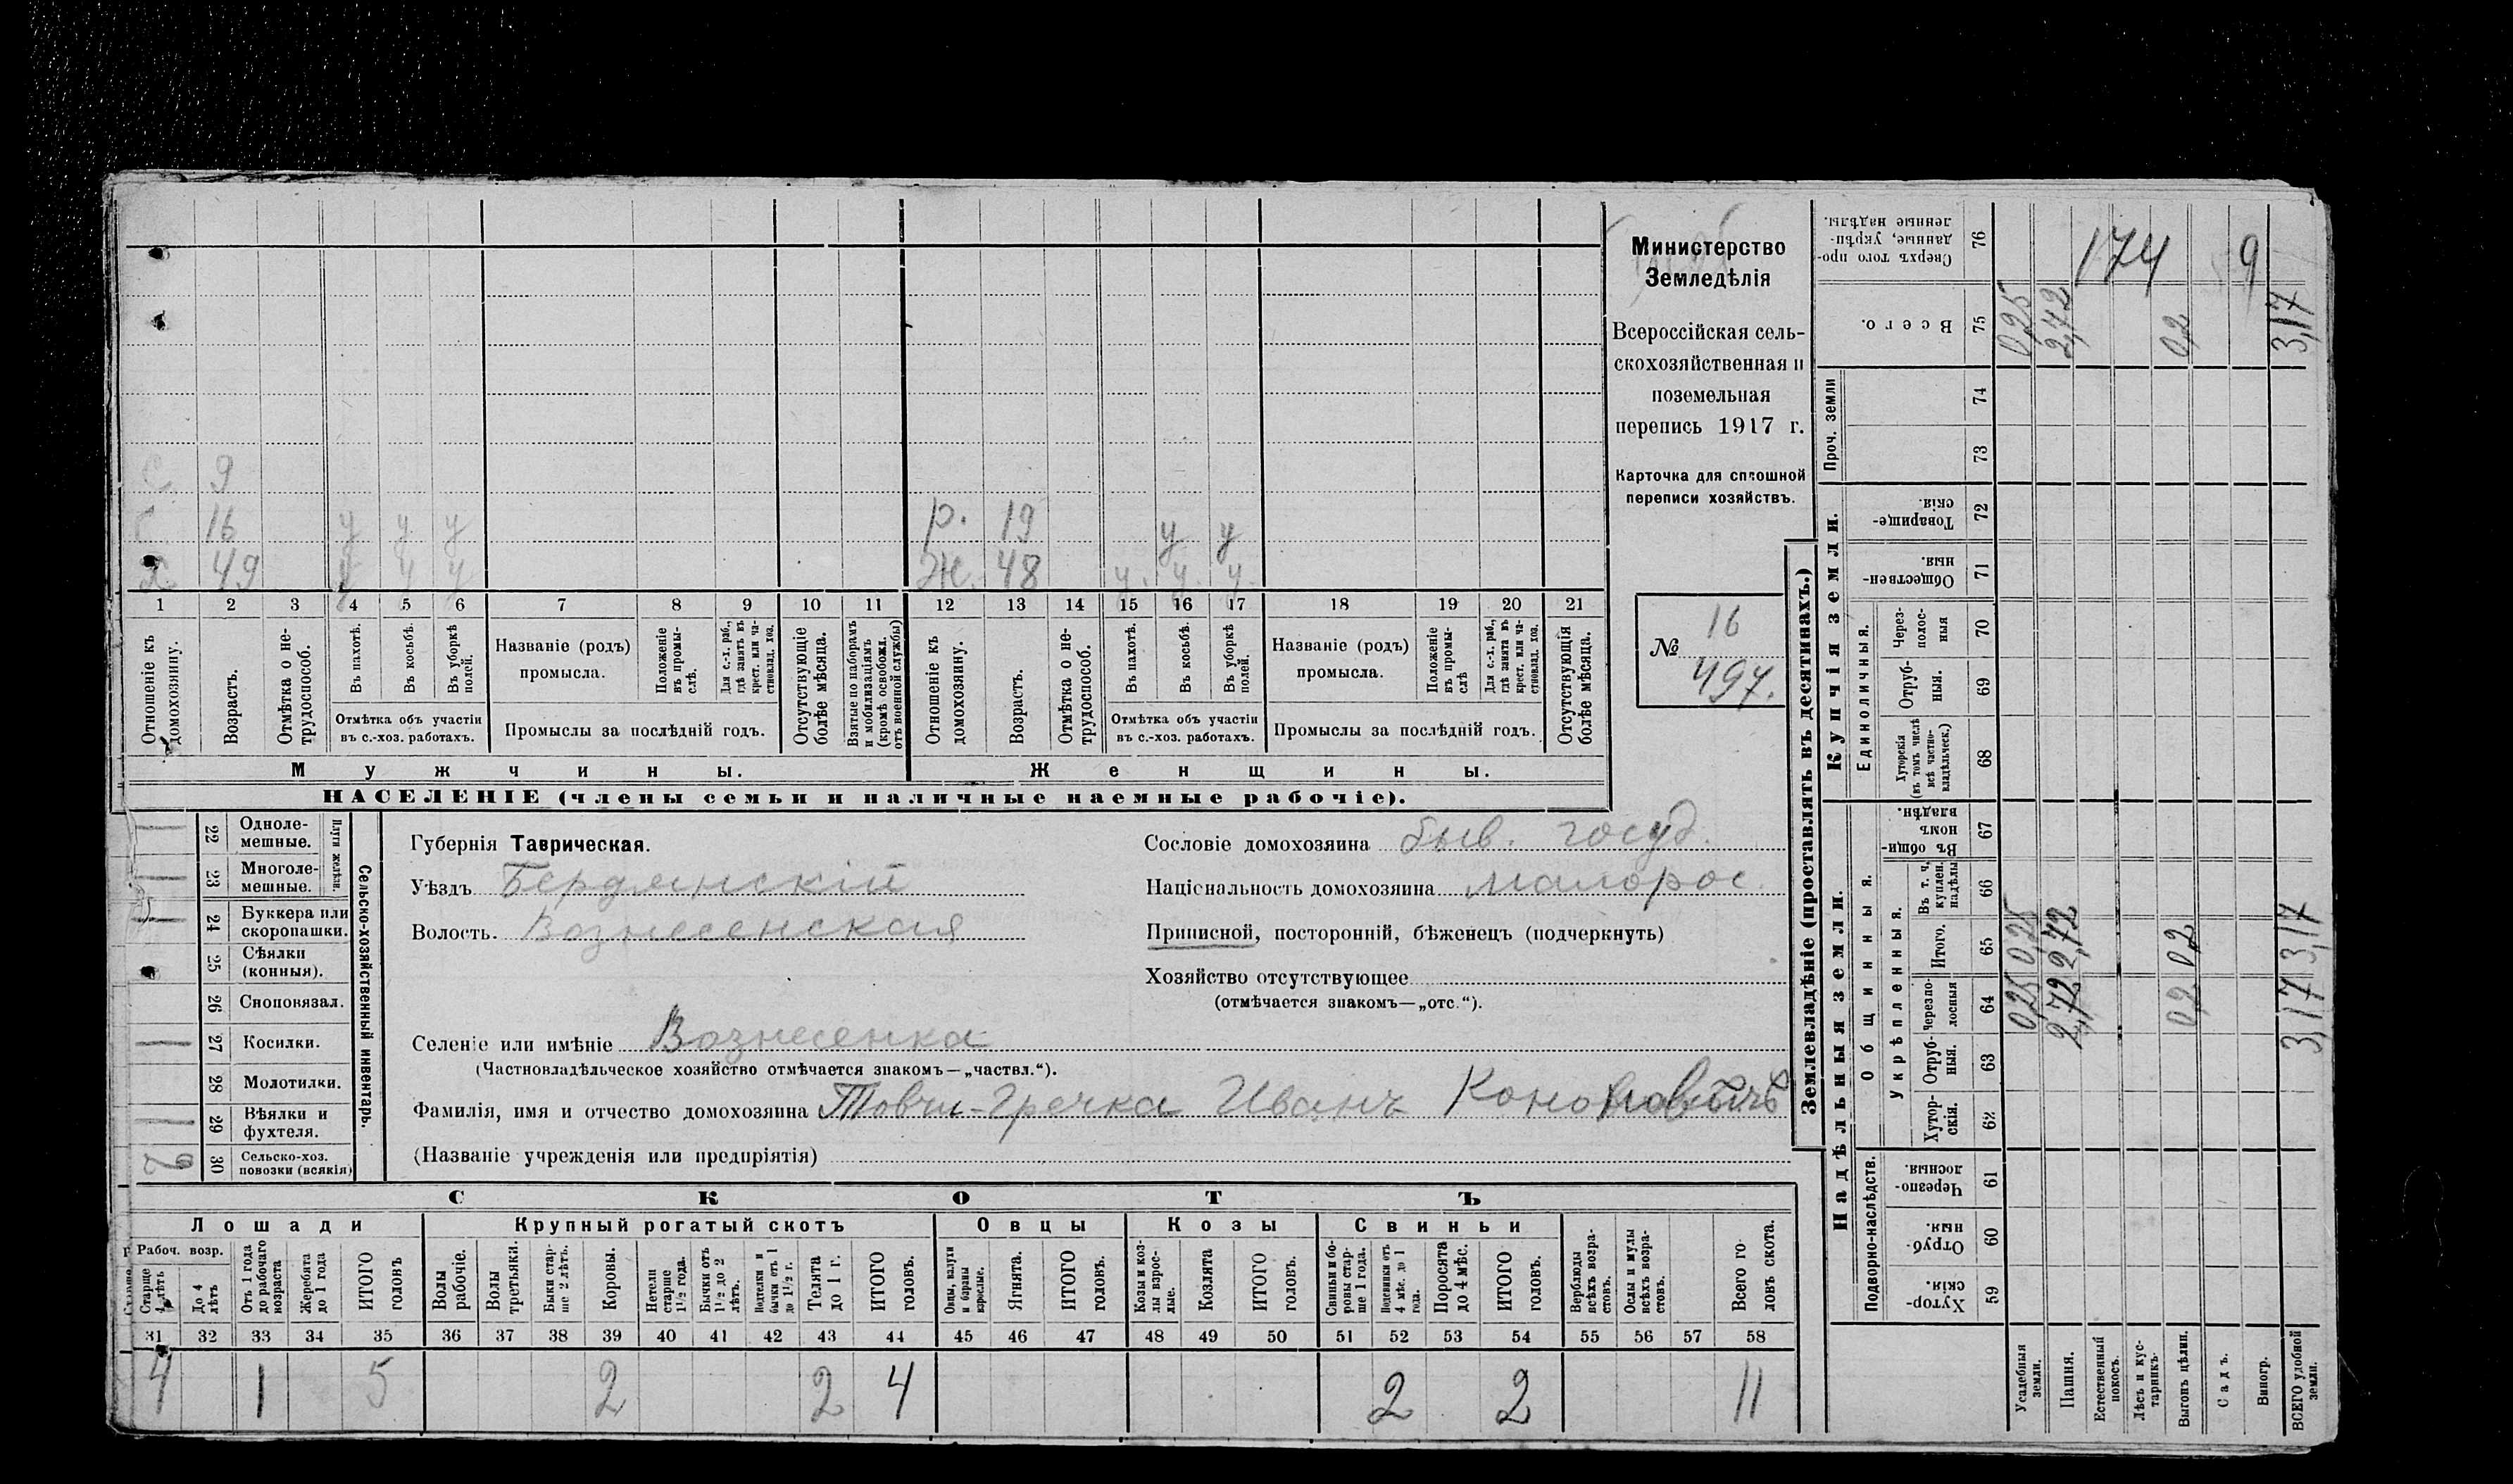 Министерство
Земледѣлія
Всероссійская сель-
скохозяйственная и
поземельная
перепись 1917 г.
Карточка для сплошной
переписи хозяйствъ.
№ 16
497.
С 9
16 у у у
Х. 49 у у у
р. 19 у у
Ж. 48 у. у. у.
1 2 3 4 5 6 7 8 9 10 11 12 13 14 15 16 17 18 19 20 21
Отношеніе къ домохозяину.
Возрастъ.
Отмѣтка о не-трудоспособ.
Въ пахотѣ.
Въ косьбѣ.
Въ уборкѣ полей.
Отмѣтка объ участіи
въ с.-хоз. работахъ.
Названіе (родъ)
промысла.
Положеніе въ промы-слѣ.
Для с.-х. раб., гдѣ занятъ въ крест. или ча-стновлад. хоз.
Промыслы за послѣдній годъ.
Отсутствующіе болѣе мѣсяца.
Взятые по наборамъ и мобилизаціямъ (кромѣ освобожд. отъ военной службы)
Отношеніе къ домохозяину.
Возрастъ.
Отмѣтка о не-трудоспособ.
Въ пахотѣ.
Въ косьбѣ.
Въ уборкѣ полей.
Отмѣтка объ участіи
въ с.-хоз. работахъ.
Названіе (родъ)
промысла.
Положеніе въ промы-слѣ
Для с.-х. раб., гдѣ занята въ крест. или ча-стновлад. хоз.
Промыслы за послѣдній годъ.
Отсутствующія болѣе мѣсяца.
Мужчины.
Женщины.
НАСЕЛЕНІЕ (члены семьи и наличные наемные рабочіе).
Сельско-хозяйственный инвентарь.
Плуги желѣзн.
1 22 Одноле-мешные.
1 23 Многоле-мешные.
1 24 Буккера или скоропашки.
25 Сѣялки (конныя).
26 Сноповязал.
1 27 Косилки.
28 Молотилки.
1 29 Вѣялки и фухтеля.
30 Сельско-хоз. повозки (всякія)
Губернія Таврическая.
Уѣздъ Бердянскій
Волость. Вознесенская
Сословіе домохозяина быв. госуд.
Національность домохозяина малорос.
Приписной, посторонній, бѣженецъ (подчеркнуть)
Хозяйство отсутствующее
(отмѣчается знакомъ—„отс.“).
Селеніе или имѣніе Вознесенка
(Частновладѣльческое хозяйство отмѣчается знакомъ—„частвл.“).
Фамилія, имя и отчество домохозяина Товчи-Гречка Иванъ Кононовичъ
(Названіе учрежденія или предпріятія)
СКОТЪ
Лошади Крупный рогатый скотъ Овцы Козы Свиньи
Рабоч. возр.
Старше 4 лѣтъ
До 4 лѣтъ
Отъ 1 года до рабочаго возраста
Жеребята до 1 года
ИТОГО головъ
Волы рабочіе.
Волы третьяки.
Быки стар-ше 2 лѣтъ.
Коровы.
Нетели старше 1½ года.
Бычки отъ 1½ до 2 лѣтъ.
Подтелки и бычки отъ 1 до 1½ г.
Телята до 1 г.
ИТОГО головъ.
Овцы, валухи и бараны взрослые.
Ягнята.
ИТОГО головъ.
Козы и коз-лы взрос-лые.
Козлята
ИТОГО головъ.
Свиньи и бо-ровы стар-ше 1 года.
Подсвинки отъ 4 мѣс. до 1 года.
Поросята до 4 мѣс.
ИТОГО головъ.
Верблюды всѣхъ возра-стовъ.
Ослы и мулы всѣхъ возра-стовъ.
Всего го-ловъ скота.
31 32 33 34 35 36 37 38 39 40 41 42 43 44 45 46 47 48 49 50 51 52 53 54 55 56 57 58
4 1 5 2 2 4 2 2 11
Землевладѣніе (проставлять въ десятинахъ.)
Надѣльныя земли.
Купчія земли.
Проч. земли
Подворно-наслѣдств.
Общинныя.
Укрѣпленныя.
Единоличныя.
Сверхъ того про-данные, укрѣп-ленные надѣлы. 76 174 9
Всего. 75 0,25 2,72 0,2 3,17
74
73
Товарище-скія. 72
Обществен-ныя. 71
Через-полос-ныя 70
Отруб-ныя. 69
Хуторскія (въ томъ числѣ всѣ частно-владѣльческ.) 68
Въ общи-номъ владѣн. 67
Въ т. ч. куплен. надѣлы 66
Итого. 65 0,25 2,72 0,2 3,17
Черезпо-лосныя 64 0,25 2,72 0,2 3,17
Отруб-ныя. 63
Хутор-скія. 62
Черезпо-лосныя. 61
Отруб-ныя. 60
Хутор-скія. 59
Усадебныя земли.
Пашня.
Естественный покосъ.
Лѣсъ и кус-тарникъ.
Выгонъ цѣлин.
Садъ.
Виногр.
ВСЕГО удобной земли.